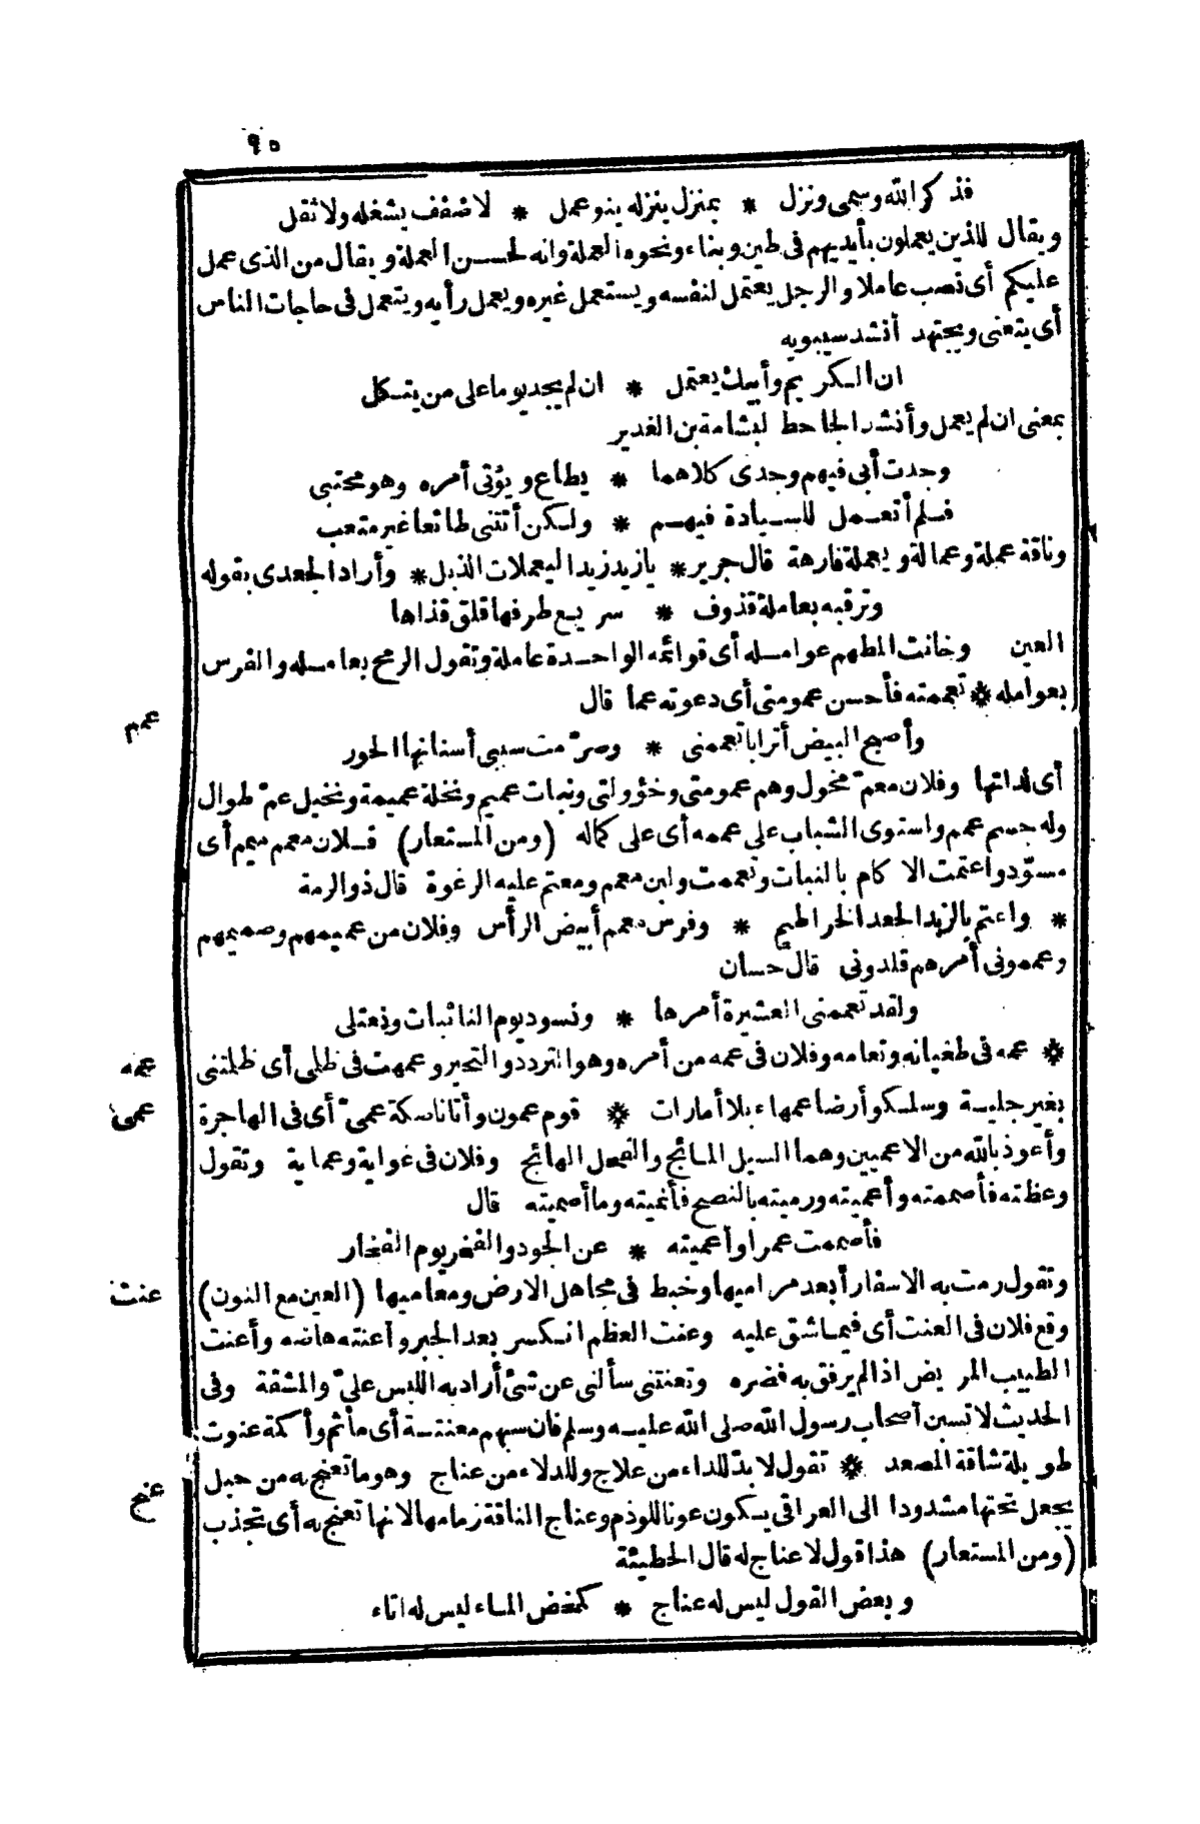 ٩٥
فذكر الله وسمى ونزل * بمنزل ينزله بنو عمل * لا ضفف يشغله ولا ثقل
ويقال للذين يعملون بأيديهم فى طين وبناء ونحوه العملة وانه لحسن العملة ويقال من الذى عمل
عليكم أى نصب عاملا والرجل يعتمل لنفسه ويستعمل غيره ويعمل رأيه ويتعمل فى حاجات الناس
أى يتعنى ويجتهد أنشد سيبويه
ان الكريم وأبيك يعتمل * ان لم يجد يوما على من يتكل
بمعنى ان لم يعمل وأنشد الجاحظ لبشامة بن الغدير
وجدت أبى فيهم وجدى كلاهما * يطاع ويؤتى أمره وهو محتبى
فلم أتعمل للسيادة فيهم * ولكن أتتنى طائعا غير متعب
وناقة عملة وعمالة ويعملة فارهة قال جرير * يا زيد زيد اليعملات الذبل * وأراد الجعدى بقوله
وترقبه بعاملة قذوف * سريع طرفها قلق قذاها
العين وخانت المطهم عوامله أى قوائمه الواحدة عاملة وتقول الرمح بعامله والفرس
بعوامله * تعممته فأحسن عمومتى أى دعوته عما قال
عمم
وأصبح البيض أترابا تعممنى * وصرّمت سببى أسنانها الحور
أى لداتها وفلان معمّ مخول وهم عمومتى وخؤولتى ونبات عميم ونخلة عميمة ونخيل عمّ طوال
وله جسم عمم واستوى الشباب على عممه أى على كماله (ومن المستعار) فلان معمم ميم أى
مسوّد واعتمت الاكام بالنبات وتعممت ولبن معمم ومعتم عليه الرغوة قال ذو الرمة
* واعتم بالزبد الجعد الخراطيم * وفرس معمم أبيض الرأس وفلان من عميمهم وصميمهم
وعممونى أمرهم قلدونى قال حسان
ولقد تعممنى العشيرة أمرها * ونسود يوم النائبات ونعتلى
* عمه فى طغيانه وتعامه وفلان فى عمه من أمره وهو التردد والتحير وعمهت فى ظلمى أى ظلمتنى
عمه
بغير جلية وسلكوا أرضا عمهاء بلا أمارات * قوم عمون وأتانا صكة عمىّ أى فى الهاجرة
عمى
وأعوذ بالله من الاعميين وهما السيل المائج والفحل الهائج وفلان فى غواية وعماية وتقول
وعظته فأصممته وأعميته ورميته بالنصح فأنميته وما أصميته قال
فأصممت عمرا وأعميته * عن الجود والفخر يوم الفخار
وتقول رمت به الاسفار أبعد مراميها وخبط فى مجاهل الارض ومعاميها (العين مع النون)
عنت
وقع فلان فى العنت أى فيما شق عليه وعنت العظم انكسر بعد الجبر وأعنته هاضه وأعنت
الطبيب المريض اذا لم يرفق به فضره وتعنتنى سألنى عن شئ أراد به اللبس علىّ والمشقة وفى
الحديث لا تسبن أصحاب رسول الله صلى الله عليه وسلم فان سبهم معنتة أى مأثم وأكمة عنوت
طويلة شاقة المصعد * تقول لا بدّ للداء من علاج وللدلاء من عناج وهو ما تعنج به من حبل
عنج
يجعل تحتها مشدودا الى العراقى يكون عونا للوذم وعناج الناقة زمامها لانها تعنج به أى تجذب
(ومن المستعار) هذا قول لا عناج له قال الحطيئة
وبعض القول ليس له عناج * كمخض الماء ليس له اتاء